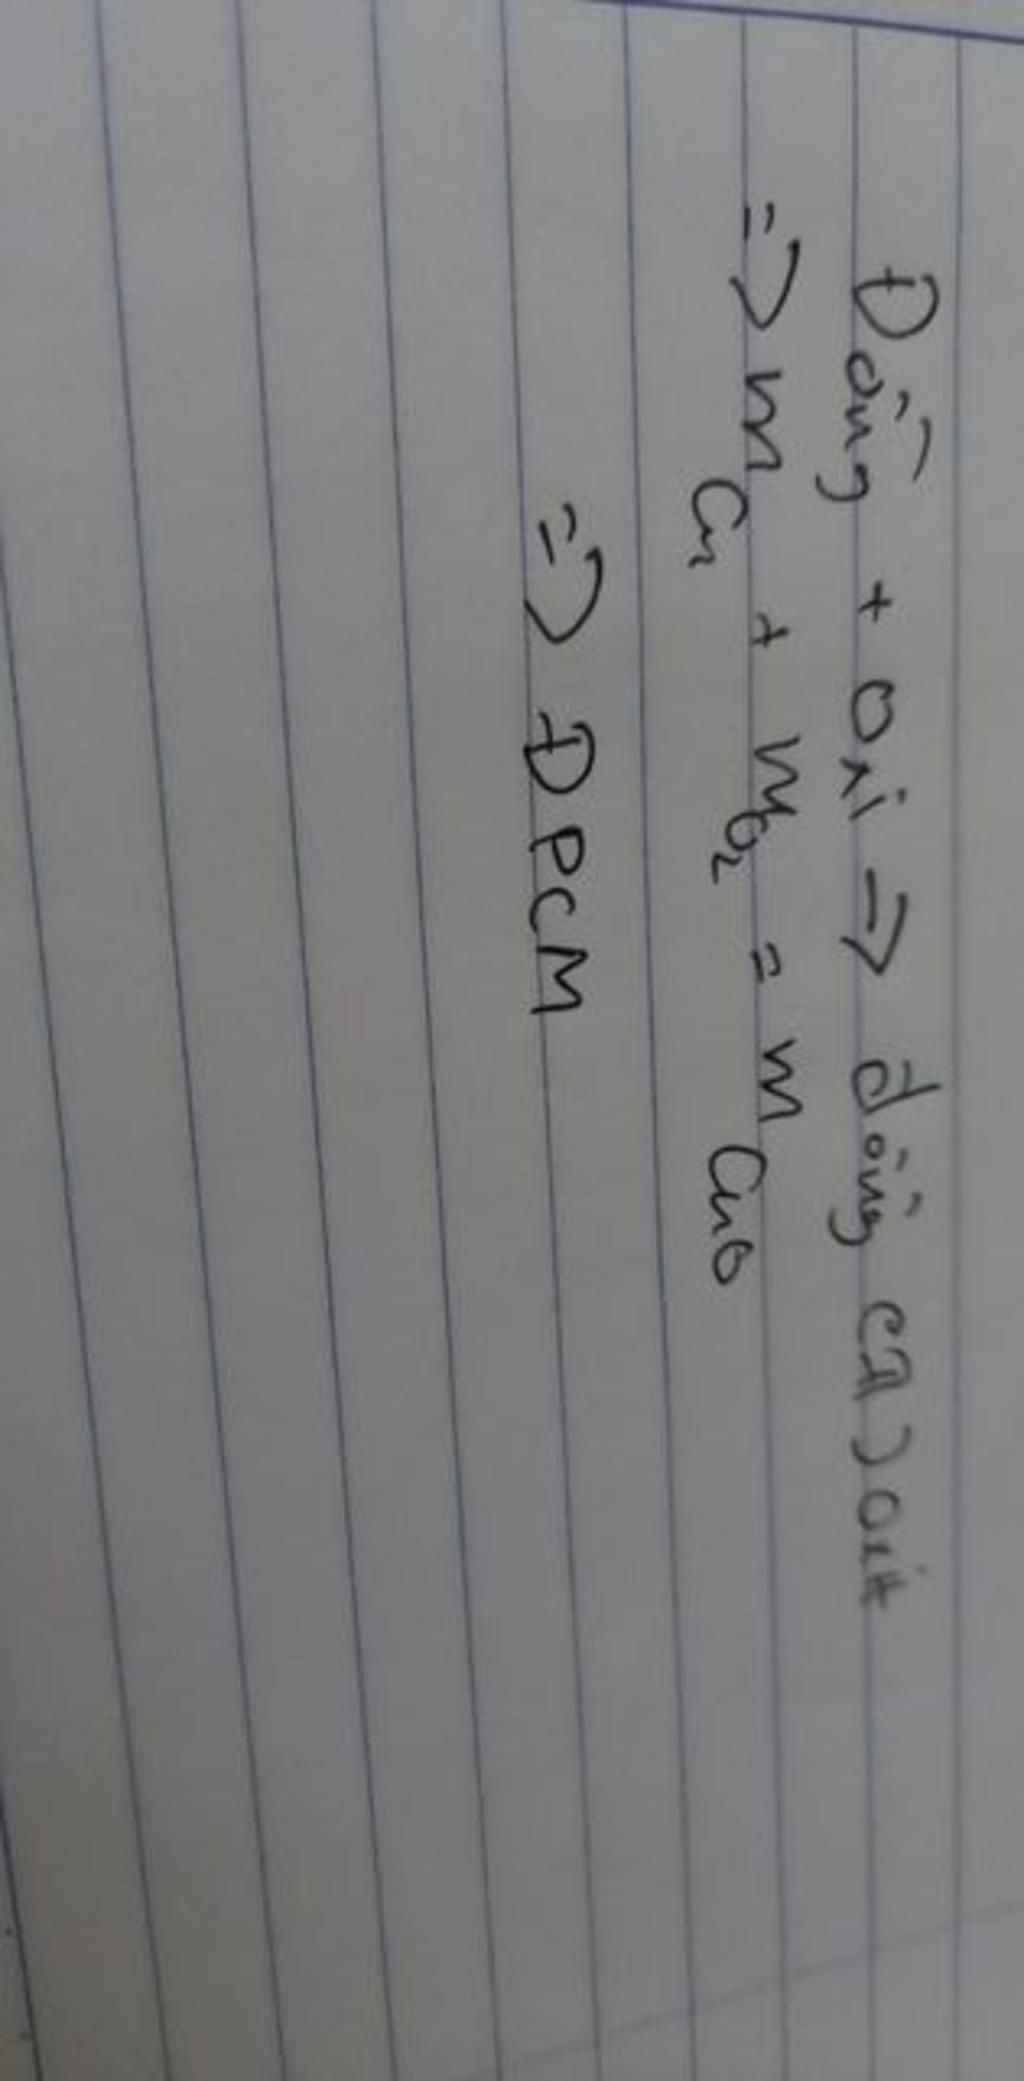 Đồng + oxi => đồng (II) oxit
=> m Cu + m O2 = m CuO
=> ĐPCM